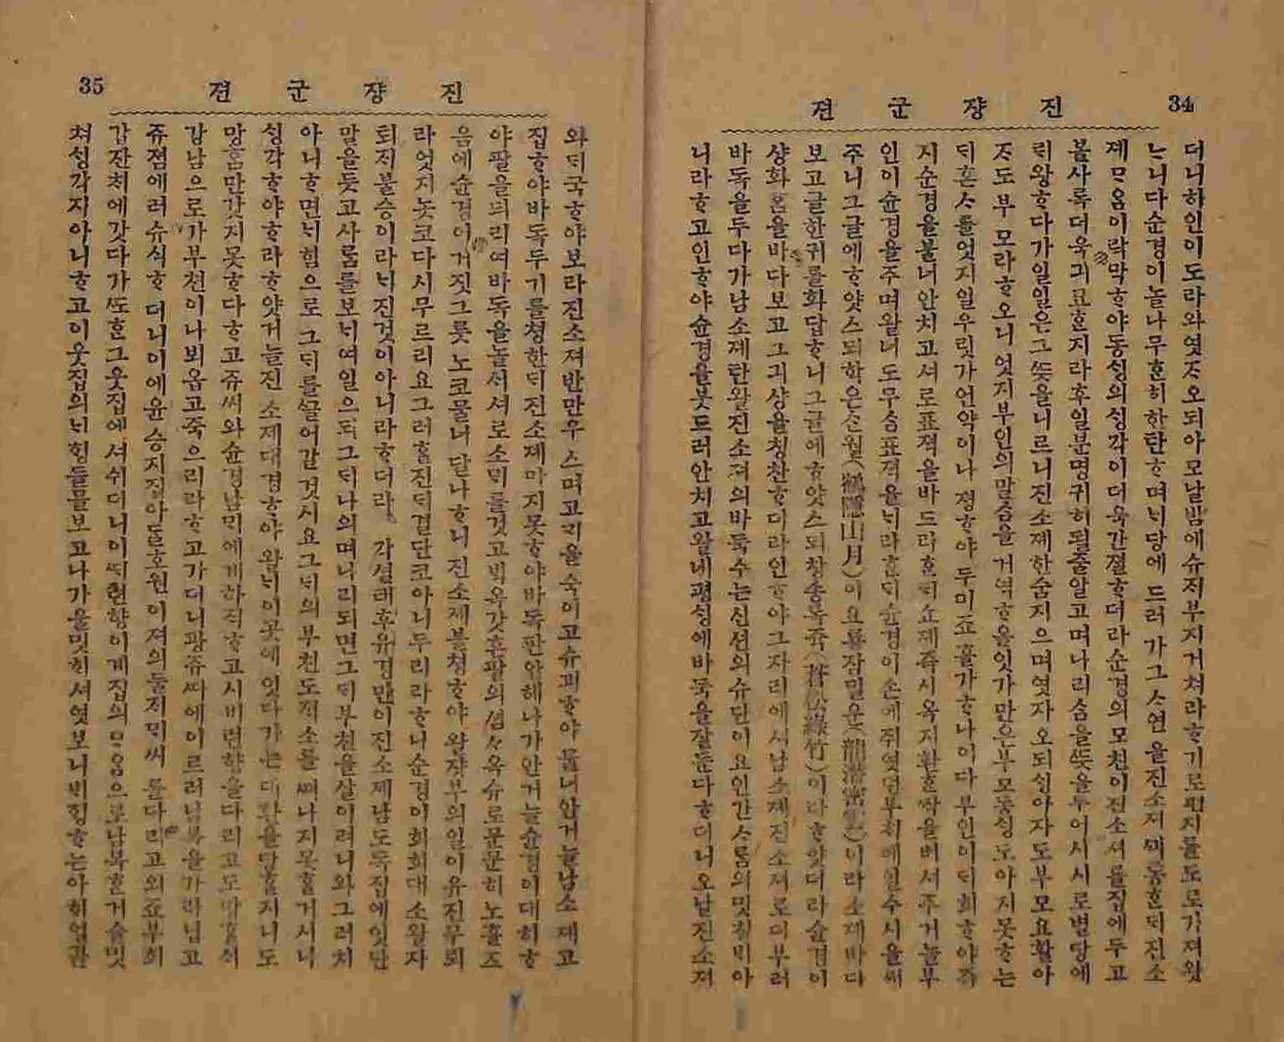 34
진쟝군젼
더니하인이도라와엿ᄌᆞ오되아모날밤에슈져부지거쳐라ᄒᆞ기로편지를도로가져왓
ᄂᆞ니다순경이놀나무흔히한탄ᄒᆞ며ᄂᆡ당에드러가그ᄉᆞ연을진소져ᄭᅴ통ᄒᆞᆫᄃᆡ진소
졔ᄆᆞ음이락막ᄒᆞ야동ᄉᆡᆼ의ᄉᆡᆼ각이더욱간졀ᄒᆞ더라순경의모친이진소져를집에두고
볼사록더욱긔묘ᄒᆞᆫ지라후일분명귀히될줄알고며나리ᄉᆞᆷ을ᄯᅳᆺ을두어시시로별당에
ᄅᆡ왕ᄒᆞ다가일일은그ᄯᅳᆺ을니르니진소졔한숨지으며엿자오되ᄉᆡᆼ아자도부모요활아
ᄌᆞ도부모라ᄒᆞ오니엇지부인의말ᄉᆞᆷ을거역ᄒᆞ을잇가만은부모동ᄉᆡᆼ도아지못ᄒᆞ는
ᄃᆡ혼ᄉᆞ를엇지일우릿가언약이나졍ᄒᆞ야두미죠흘가ᄒᆞ나이다부인이ᄃᆡ희ᄒᆞ야즉
시순경을불너안치고셔로표젹을바드라ᄒᆞᆫᄃᆡ쇼졔즉시옥지환ᄒᆞᆫᄶᅡᆨ을버셔주거늘부
인이순경을주며왈너도무ᄉᆞᆷ표젹을ᄂᆡ라ᄒᆞᆫᄃᆡ순경이손에쥐엿던부ᄎᆡ에일수시을써
주니그글에ᄒᆞ얏스되학은산월(鶴隱山月)이요룡잠밀운(龍潛密雲)이라소졔바다
보고글한귀를화답ᄒᆞ니그글에ᄒᆞ얏스되창송록쥭(蒼松綠竹)이라ᄒᆞ얏더라순경이
샹화ᄒᆞᆫ을바다보고그긔샹을칭찬ᄒᆞ더라인ᄒᆞ야그자리에셔남소졔진소져로더부러
바독을두다가남소졔탄왈진소져의바독수는신션의슈단이요인간ᄉᆞ람의밋칠ᄇᆡ아
니라ᄒᆞ고인ᄒᆞ야순경을붓드러안치고왈네평ᄉᆡᆼ에바독을잘둔다ᄒᆞ더니오날진소져
35
진쟝군젼
와ᄃᆡ국ᄒᆞ야보라진소져반만우스며고ᄀᆡ을숙이고슈괴ᄒᆞ야물너안거늘남소졔고
집ᄒᆞ야바독두기를쳥한ᄃᆡ진소졔마지못ᄒᆞ야바독판압헤나가안거늘순경이대히ᄒᆞ
야팔을듸리여바독을놀ᄉᆡ셔로소ᄆᆡ를것고ᄇᆡᆨ옥갓흔팔의셤々옥슈로문문히노흘즈
음에순경이거짓그릇노코물너달나ᄒᆞ니진소졔불쳥ᄒᆞ야왈쟝부의일이유진무퇴
라엇지놋코다시무르리요그러ᄒᆞᆯ진ᄃᆡ결단코아니두리라ᄒᆞ니순경이희희대소왈자
되지불승이라ᄂᆡ진것이아니라ᄒᆞ더라 각셜레후유경만이진소졔남도독집에잇단
말을듯고사ᄅᆞᆷ를보ᄂᆡ여일으되그ᄃᆡ나의며나리되면그ᄃᆡ부친을살이려니와그러치
아니ᄒᆞ면ᄂᆡ힘으로그ᄃᆡ를ᄭᅳᆯ어갈것시요그ᄃᆡ의부친도젹소를ᄯᅥ나지못ᄒᆞᆯ거시니
ᄉᆡᆼ각ᄒᆞ야ᄒᆞ라ᄒᆞ얏거늘진소졔대경ᄒᆞ야왈ᄂᆡ이곳에잇다가는대환을당ᄒᆞᆯ지니도
망홈만갓지못ᄒᆞ다ᄒᆞ고쥬씨와순경남ᄆᆡ에게하직ᄒᆞ고시비련향을다리고도망ᄒᆞᆯᄉᆡ
강남으로가부친이나뵈옵고죽으리라ᄒᆞ고가더니광쥬ᄯᅡ에이르러남복을가라닙고
쥬졈에러슈식ᄒᆞ더니이에윤승지집아ᄃᆞᆯ호원이져의둘지ᄆᆡ씨를다리고외죠부희
갑잔치에갓다가ᄯᅩᄒᆞᆫ그웃집에셔쉬더니이ᄯᆡ련향이계집의ᄆᆞ음으로남복ᄒᆞᆫ거슬밋
쳐ᄉᆡᆼ각지아니ᄒᆞ고이웃집의ᄂᆡᄒᆡᆼ들믈보고나가을밋ᄒᆡ셔엿보니ᄇᆡᄒᆡᆼᄒᆞ는아ᄒᆡ업관